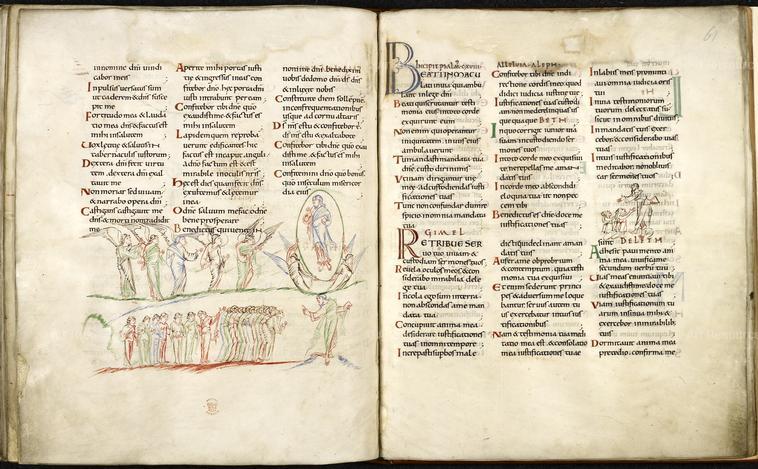 innomine dni uindi
cabor in eos
Inpulsus uersatus sum
ut caderem & dns susce
pit me
Fortitudo mea & lauda
tio mea dns & factus est
mihi insalutem
Uox leticię & salutis in
tabernaculis iustorum
Dextera dni fecit uirtu
tem dextera dni exal
tauit me
Non moriar sed uiuam
& narrabo opera dni
Castigans castigauit me
dns & morti non tradidit
me
Aperite mihi portas iusti
tię & ingressus in eas con
fitebor dno hęc porta dni
iusti intrabunt per eam
Confitebor tibi dne quo
exaudisti me & factus es
mihi insalutem
Lapidem quem reproba
uerunt edificantes hic
factus est incaput anguli
A dno factum est & est
mirabile in oculis nris
Hęc est dies quam fecit dns
exultemus & letemur
in ea
O dne saluum me fac o dne
bene prosperare
Benedictus qui uenit in
nomine dni benedixim
uobis de domo dni ds dns
& inluxit nobis
Constituite diem sollempne
in confrequentationibus
usque ad cornu altaris
Ds ms es tu & confitebor t
ds ms es tu & exaltabo te
Confitebor tibi dne quo exau
disti me & factus es mihi
insalutem
Confitemini dno quo bonus
quo inseculum misericor
dia eius
61
Incipit psalm cxviii
BEATI INMACU
lati in uia qui ambu
lant in lege dni
Beati qui scrutantur testi
monia eius in toto corde
exquirunt eum
Non enim qui operantur
iniquitatem in uiis eius
ambulauerunt
Tu mandasti mandata tua
dne custodiri nimis
Utinam dirigantur uię
meę ad custodiendas iusti
ficationes tuas
Tunc non confundar dum pe
spicio in omnia mandata
tua
GIMEL
RETRIBUE SER
uo tuo uiuam &
custodiam sermones tuos
Reuela oculos meos & con
siderabo mirabilia de le
ge tua
Incola ego sum in terra
non abscondas a me man
data tua
Concupiuit anima mea
desiderare iustificationes
tuas in omni tempore
Increpasti superbos male
Alleluia ALEPH
Confitebor tibi dne in di
rectione cordis meo quod
didici iudicia iustitię tuę
Iustificationes tuas custodi
am non me derelinquas us
que quaque BETH
In quo corrigit iunior uia
suam in custodiendo ser
mones tuos
In toto corde meo exquisiui
te ne repellas me a man
datis tuis
In corde meo abscondi
eloquia tua ut non pec
cem tibi
Benedictus es dne doce me
iustificationes tuas
dicti qui declinant a man
datis tuis
Aufer a me obprobrium
& contemptum quia testi
monia tua exquisiui
Etenim sederunt princi
pes & aduersum me loque
bantur seruus autem tu
us exercebatur in iustifi
cationibus
Nam & testimonia tua medi
tatio mea est & consolatio
mea iustificationes tuae
In labiis meis pronuntia
ui omnia iudicia oris
tui
In uia testimoniorum
tuorum delectatus sum
sicut in omnibus diuitiis
In mandatis tuis exer
cebor & considerabo uias
tuas
In tuis iustificationibus
meditabor non obliuis
car sermones tuos
DELETH
Adhesit pauimento ani
ma mea uiuifica me
secundum uerbum tuum
Uias meas enuntiaui tibi
& exaudisti me doce me
iustificationes tuas
Uiam iustificationum tu
arum instrue me &
exercebor in mirabilib
tuis
Dormitauit anima mea
prę tedio confirma me